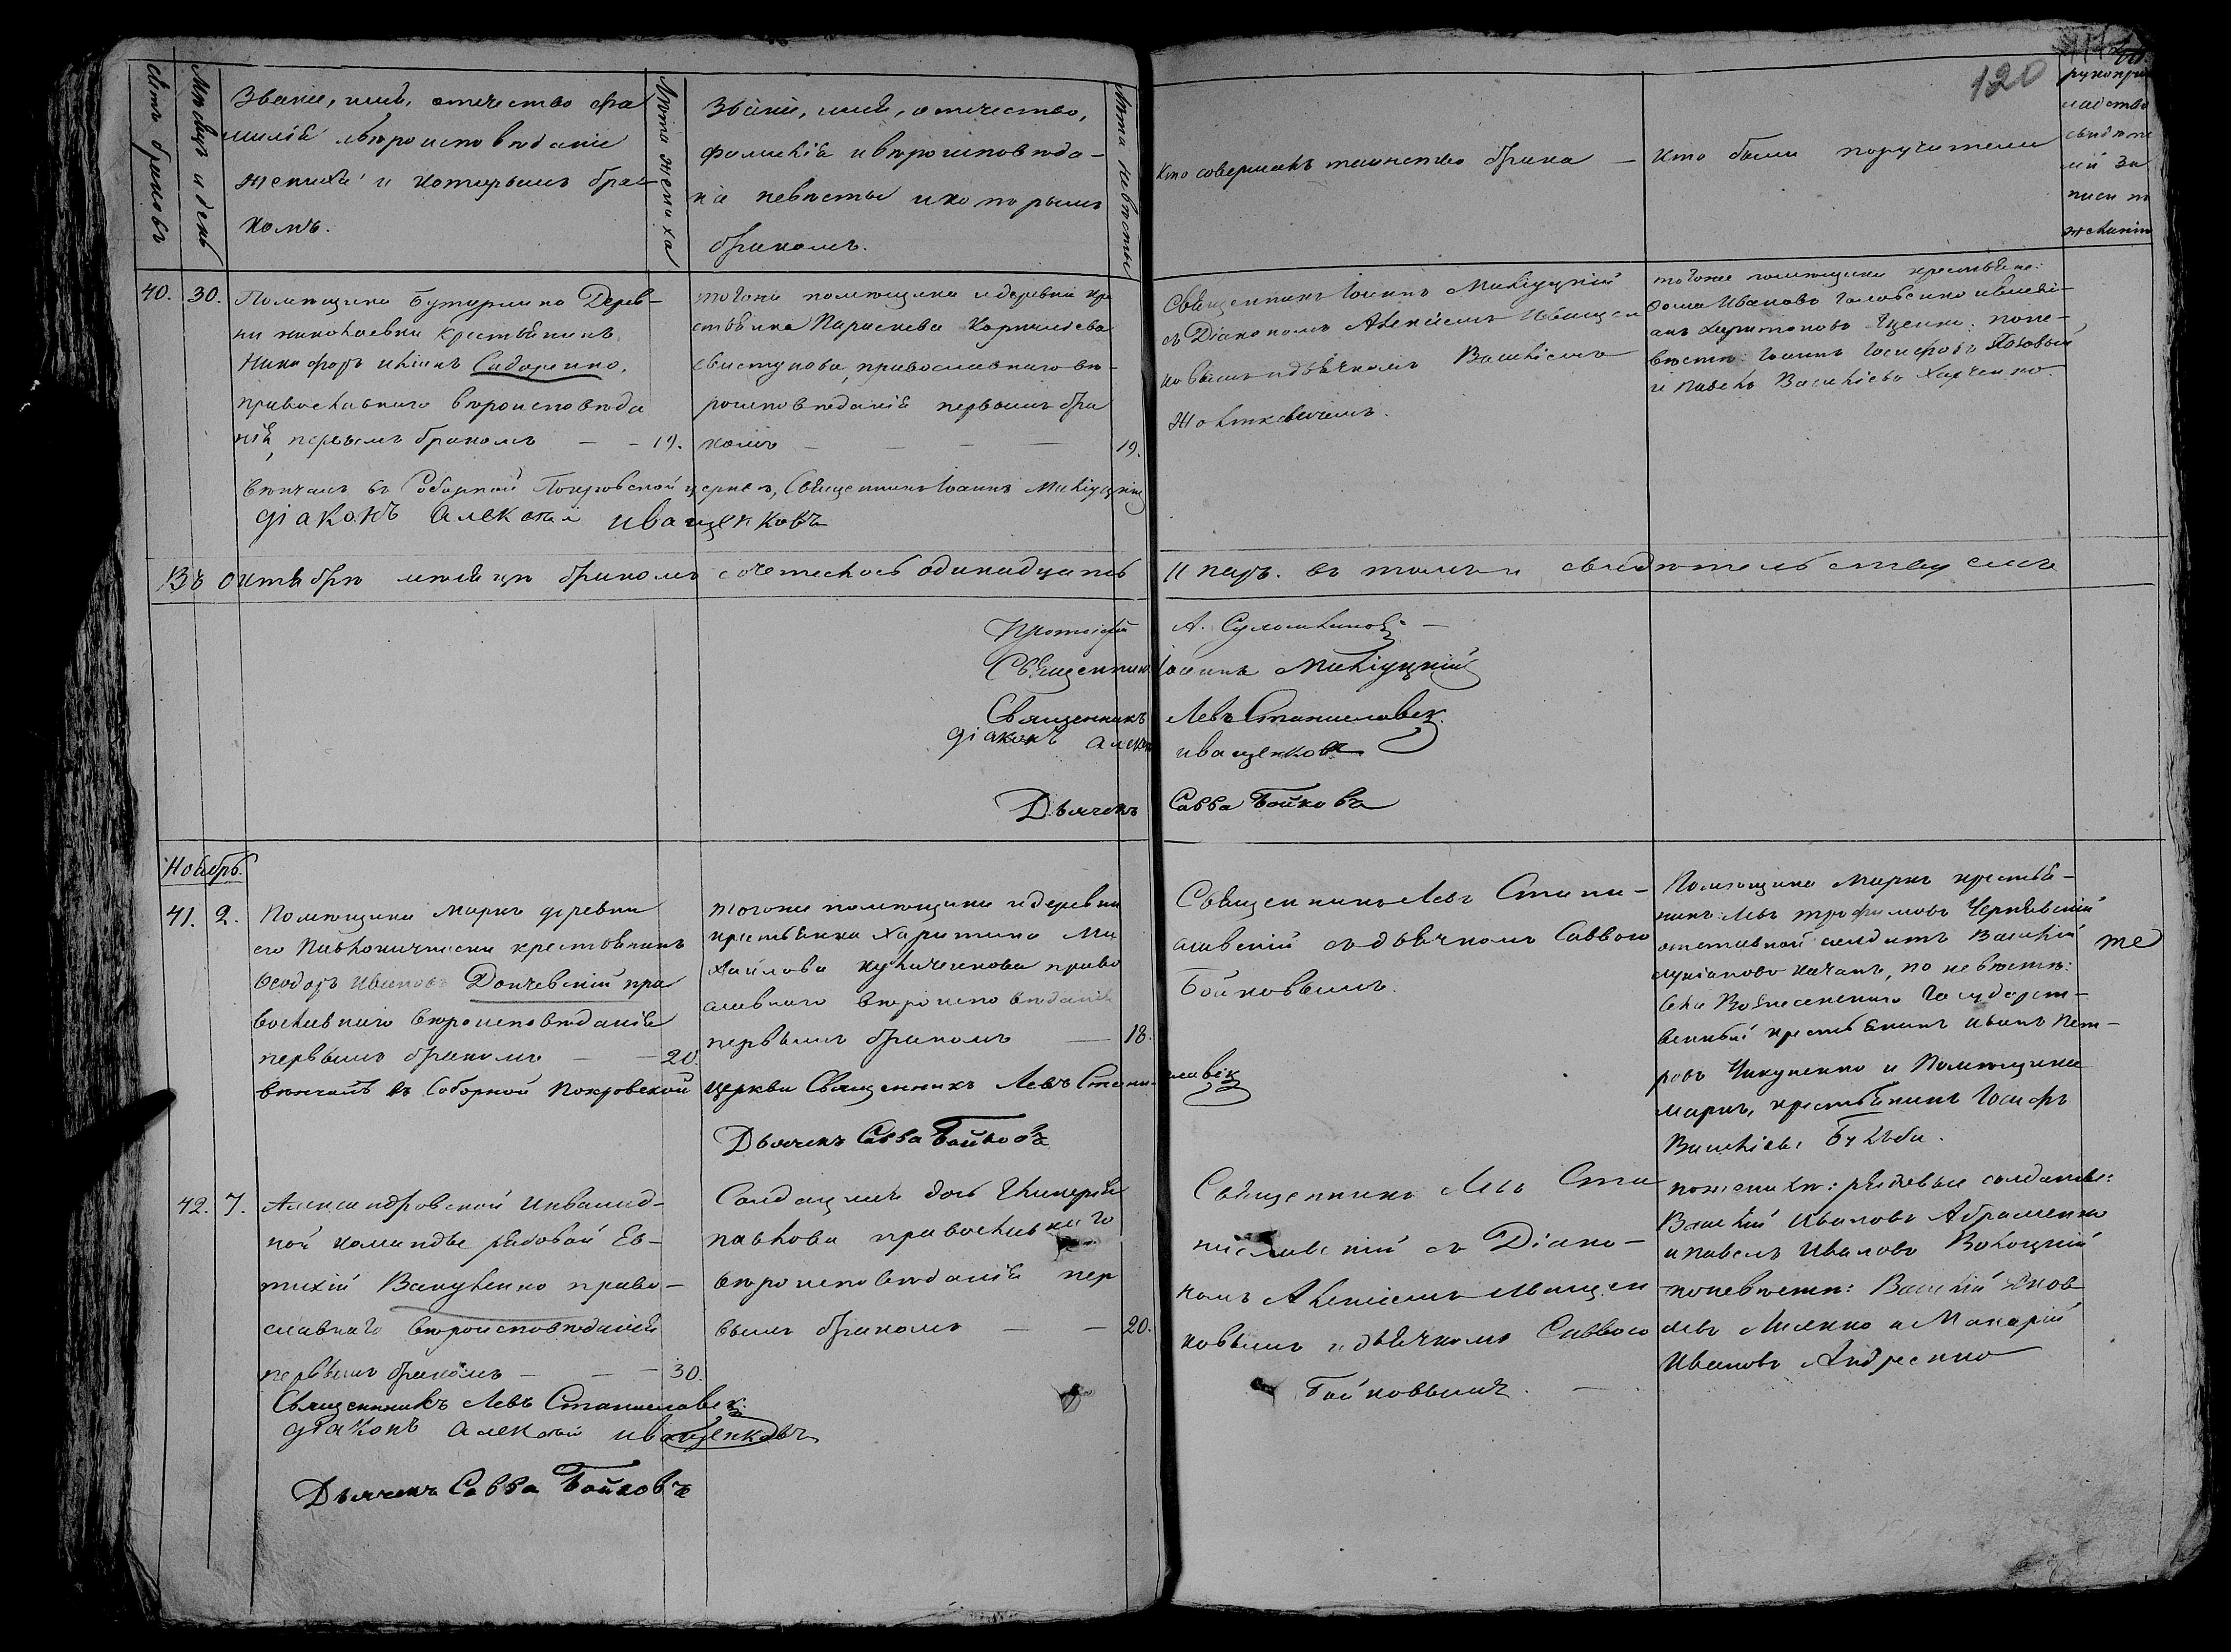 120
Счетъ браковъ
Мѣсяцъ и день
Званіе, имя, отечество фа
миліѧ вѣроисповѣданіе
жениха и которымъ бра-
комъ.
Лѣта жениха
Званіе, имя, отечество,
фамилія и вѣроисповѣда-
ніе невѣсты и которымъ
бракомъ.
Лѣта невѣсты
Кто совершалъ таинство брака —
Кто были поручители
рукопри
кладство
свидѣте
лей за
писи по
желанію
40. 30. Помѣщика Бутурлина Дерев-
ни Николаевки крестьянинъ
Никифоръ Сидоренко,
православнаго вѣроисповѣда
нія, первымъ бракомъ — — 19.
тогоже помѣщика и деревни кре
стьянка Параскева Корнилова
Свистунова, православнаго вѣ-
роисповѣданія первымъ бра
комъ — — — 19.
Священникъ Іоаннъ Милуцкій
съ Діакономъ Алексіемъ Иващен
ковымъ и дьячкомъ Василіемъ
Жолткевичемъ.
тогоже помѣщика крестьяне:
Фома Ивановъ Головенко
Харитоновъ Яценко: по не-
вѣстѣ: Іоаннъ Іосифовъ Лозовый
и Павелъ Васильевъ Харченко.
вѣнчалъ въ Соборной Покровской церкви, Священникъ Іоаннъ Милуцкій
діаконъ Алексѣй Иващенковъ
Въ Октябрѣ мѣсяцѣ бракомъ сочеталось одинадцать 11 паръ. въ томъ и свидѣтельствуемъ
Протоіерей А.
Священникъ Іоаннъ Милуцкій
Священникъ Левъ Станиславск.
діаконъ Алексѣй Иващенковъ
Дьячекъ Савва Бойковъ
Ноябрь.
41. 2. Помѣщика Марка деревни
его Павлоничкаски крестьянинъ
Ѳеодоръ Ивановъ Дончевскій пра
вославнаго вѣроисповѣданія
первымъ бракомъ — — 20.
тогоже помѣщика и деревни
крестьянка Харитина Ми
хайлова Кульиченкова право
славнаго вѣроисповѣданія
первымъ бракомъ — 18.
Священникъ Левъ Стани-
славскій съ дьячкомъ Саввою
Бойковымъ.
Помѣщика Марка крестья-
нинъ: Левъ Трофимовъ Чернявскій
отставной солдатъ Василій
Лукіановъ Качанъ, по невѣстѣ:
Села Вознесенскаго Государст-
венный крестьянинъ Иванъ Пет-
ровъ Чикуненко и Помѣщика
Марка, крестьянинъ Іосифъ
Васильевъ Бульба.
вѣнчалъ въ Соборной Покровской церкви Священникъ Левъ Станиславск
Дьячекъ Савва Бойковъ
42. 7. Александровской Инвалид-
ной команды рядовой Ев-
тихій Вакуленко право-
славнаго вѣроисповѣданія
первымъ бракомъ — — — 30.
Солдацкая дочь Гликерія
Павлова православнаго
вѣроисповѣданія пер
вымъ бракомъ — — 20.
Священникъ Левъ Ста
ниславскій съ Діако-
номъ Алексіемъ Иващен
ковымъ и дьячкомъ Саввою
Бойковымъ. —
по женихѣ: рядовые солдаты:
Василій Ивановъ Абраменко
и Павелъ Ивановъ Волоцкій
по невѣстѣ: Василій Яков
левъ Лисенко и Макарій
Ивановъ Андреенко
Священникъ Левъ Станиславск.
діаконъ Алексѣй Иващенковъ
Дьячекъ Савва Бойковъ